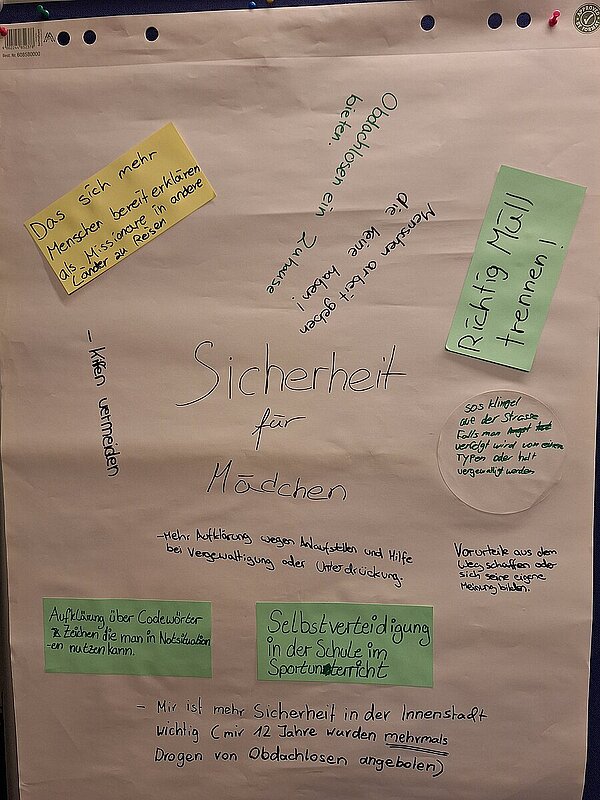 Best. Nr. 608580000
Das sich mehr
Menschen bereiterklären
als Missionare in andere
Länder zu Reisen
Obdachlosen ein Zuhause
bieten.
Menschen arbeit geben
die keine haben!
Richtig Müll
trennen!
- kiffen vermeiden
Sicherheit
für
Mädchen
SOS klingel
auf der Strasse
Falls man
verfolgt wird von einem
Typen oder halt
vergewaltigt werden
-Mehr Aufklärung wegen Anlaufstellen und Hilfe
bei Vergewaltigung oder Unterdrückung.
Vorurteile aus dem
Weg schaffen oder
sich seine eigene
Meinung bilden.
Aufklärung über Codewörter
& Zeichen die man in Notsituation
-en nutzen kann.
Selbstverteidigung
in der Schule im
Sportunterricht
- Mir ist mehr Sicherheit in der Innenstadt
wichtig (mir 12 Jahre wurden mehrmals
Drogen von Obdachlosen angeboten)